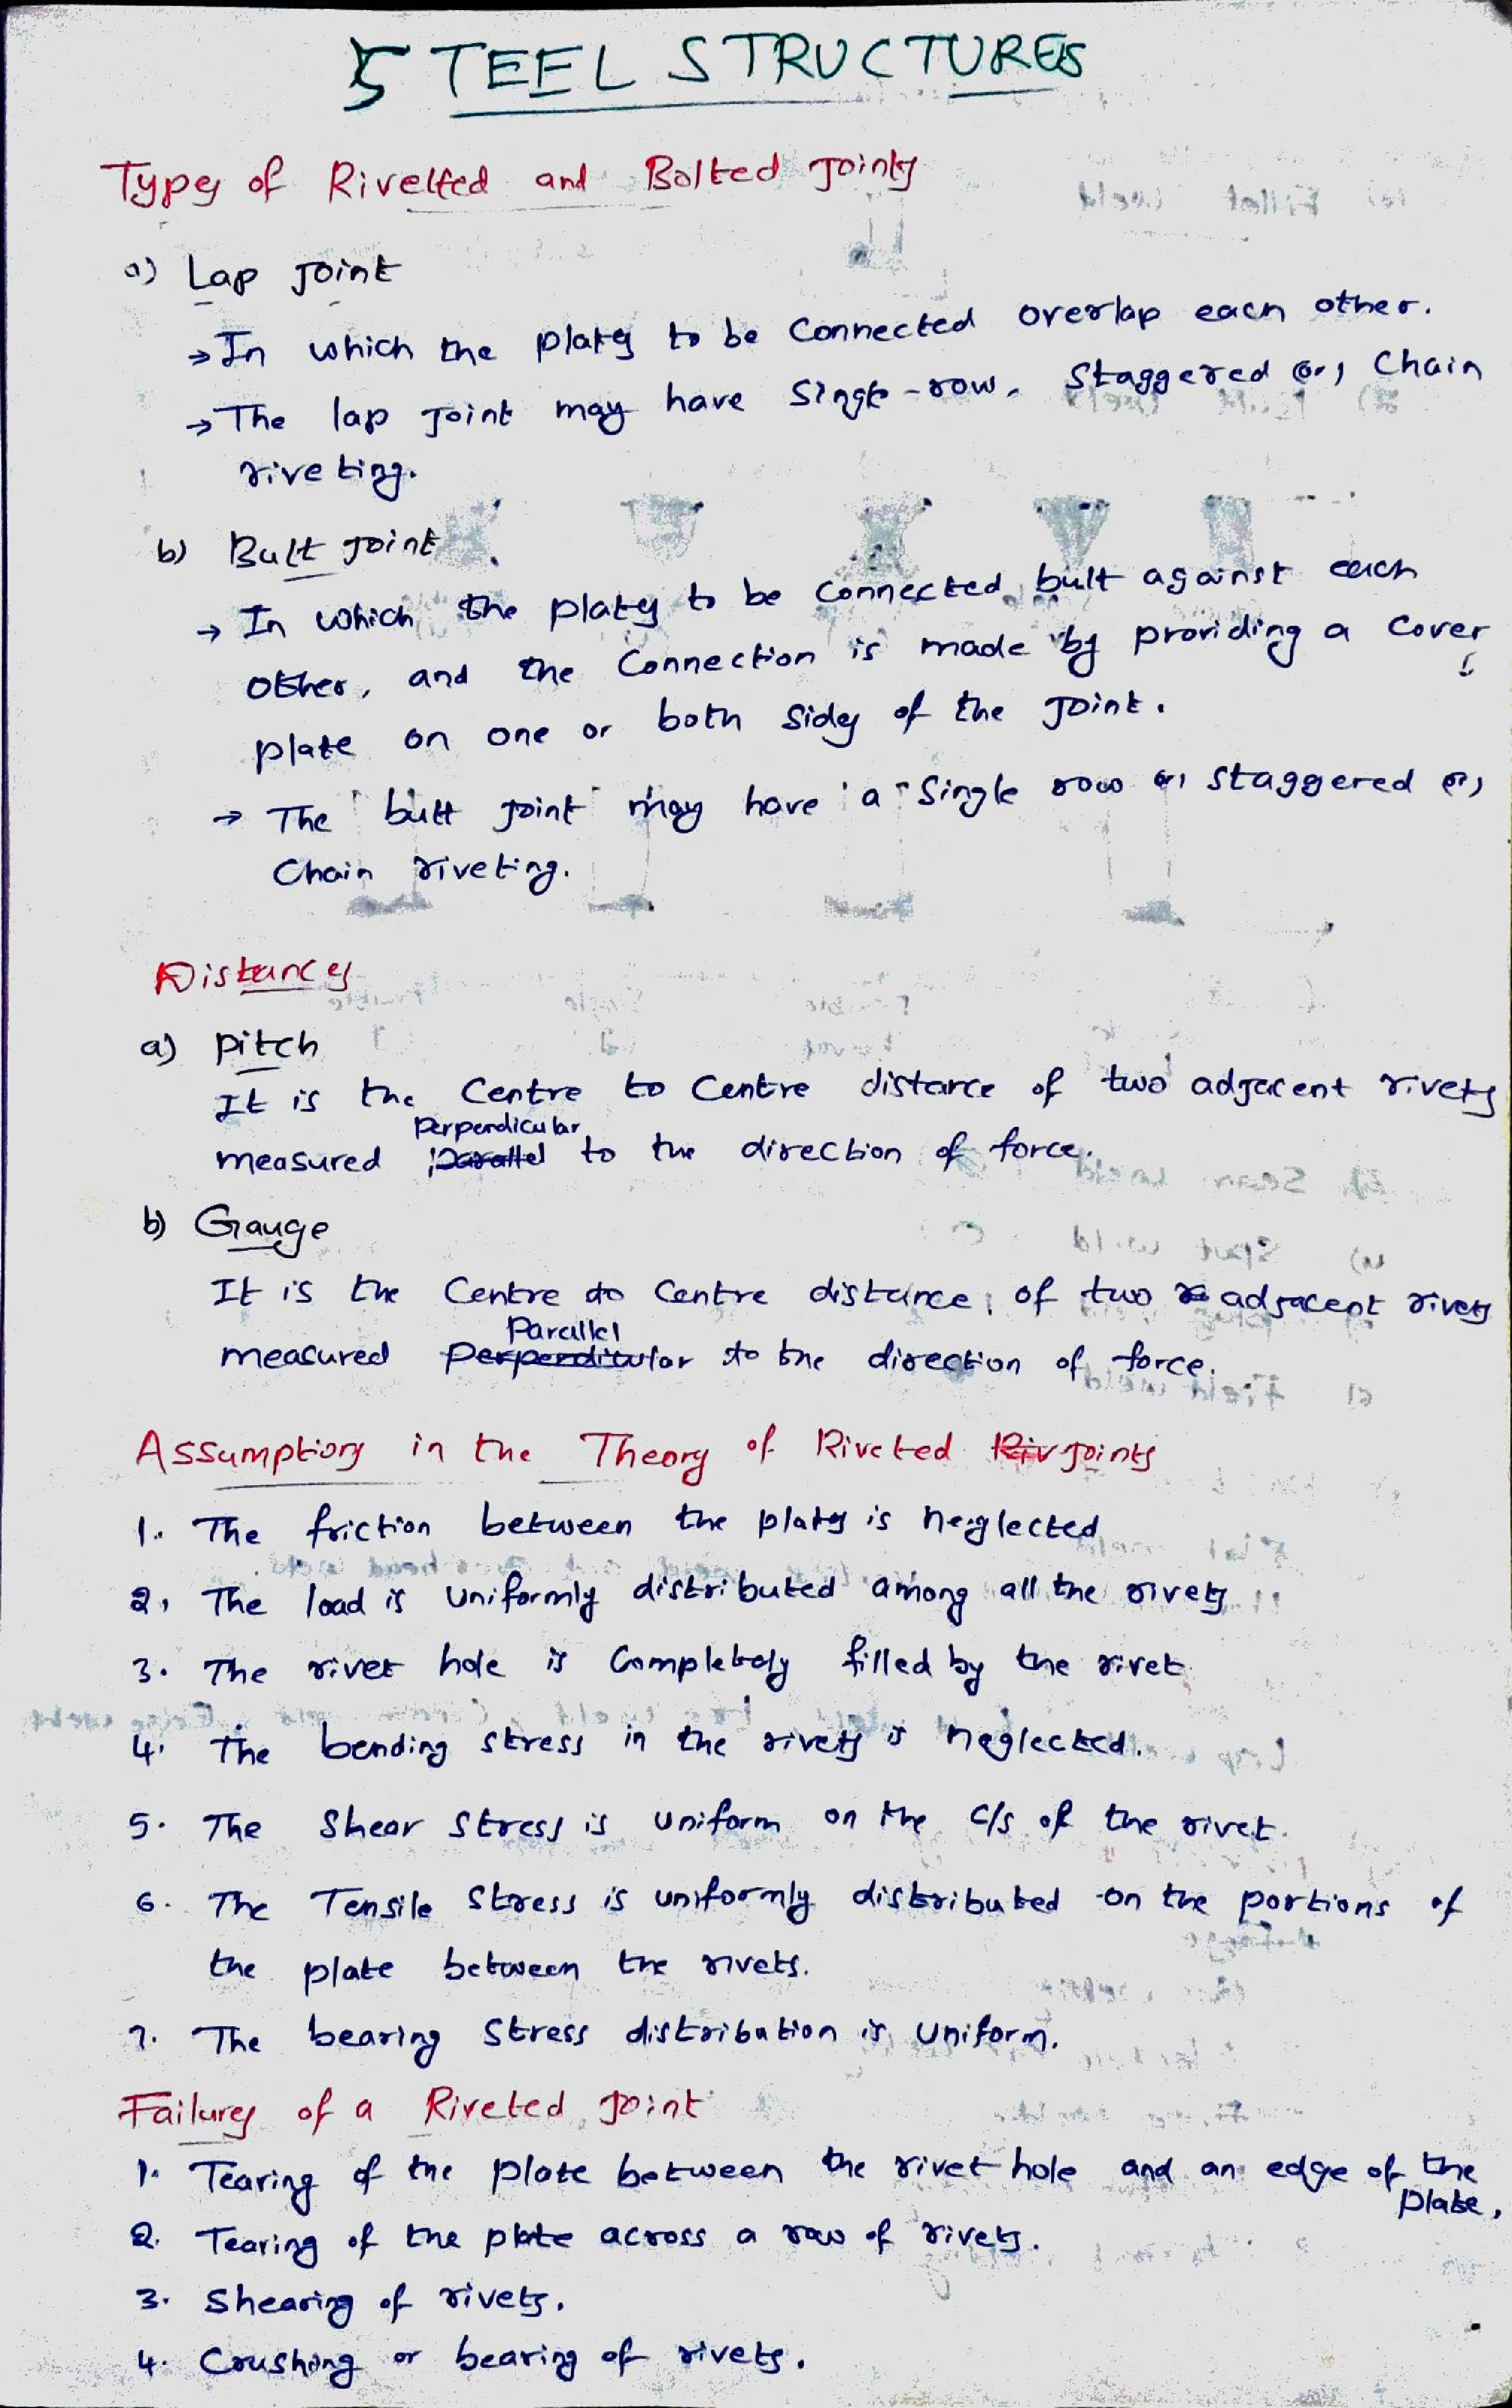 STEEL STRUCTURES
Types of Rivetted and Bolted Joints
a) Lap Joint
→ In which the plates to be Connected overlap each other.
→ The lap Joint may have Single-row, Staggered (or) Chain
riveting.
b) Butt Joint
→ In which the plates to be Connected butt against each
other, and the Connection is made by providing a Cover
plate on one or both Sides of the Joint.
→ The butt Joint may have a Single row (or) Staggered (or)
Chain riveting.
Distances
a) Pitch
It is the Centre to Centre distance of two adjacent rivets
Perpendicular
measured parallel to the direction of force.
b) Gauge
It is the Centre to Centre distance of two adjacent rivets
Parallel
measured perpendicular to the direction of force.
Assumptions in the Theory of Riveted Riv Joints
1. The friction between the plates is neglected
2. The load is Uniformly distributed among all the rivets
3. The rivet hole is Completely filled by the rivet
4. The bending stress in the rivets is neglected.
5. The Shear Stress is Uniform on the C/s of the rivet.
6. The Tensile Stress is uniformly distributed on the portions of
the plate between the rivets.
7. The bearing Stress distribution is Uniform.
Failures of a Riveted Joint
1. Tearing of the plate between the rivet hole and an edge of the
plate.
2. Tearing of the plate across a row of rivets.
3. Shearing of rivets.
4. Crushing or bearing of rivets.